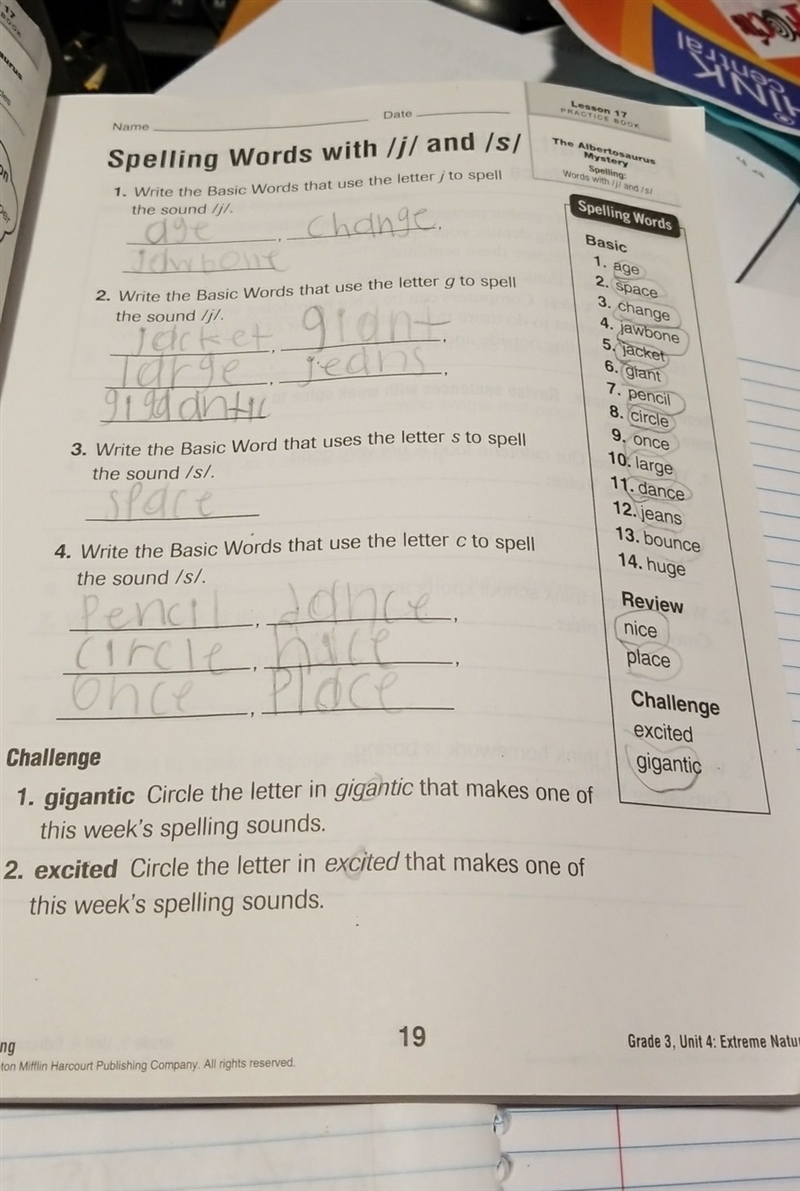 Name
Date
Lesson 17
PRACTICE BOOK
Spelling Words with /j/ and /s/
The Albertosaurus
Mystery
Spelling:
Words with /j/ and /s/
1. Write the Basic Words that use the letter j to spell
the sound /j/.
age, change.
jawbone
2. Write the Basic Words that use the letter g to spell
the sound /j/.
jacket, giant,
large, jeans,
giggantic
3. Write the Basic Word that uses the letter s to spell
the sound /s/.
space
4. Write the Basic Words that use the letter c to spell
the sound /s/.
Pencil, dance,
circle, nice,
Once, Place
Spelling Words
Basic
1. age
2. space
3. change
4. jawbone
5. jacket
6. giant
7. pencil
8. circle
9. once
10. large
11. dance
12. jeans
13. bounce
14. huge
Review
nice
place
Challenge
excited
gigantic
Challenge
1. gigantic Circle the letter in gigantic that makes one of
this week's spelling sounds.
2. excited Circle the letter in excited that makes one of
this week's spelling sounds.
ng
19
Grade 3, Unit 4: Extreme Natu
ton Mifflin Harcourt Publishing Company. All rights reserved.
17
BOOK
aurus
HINK
central